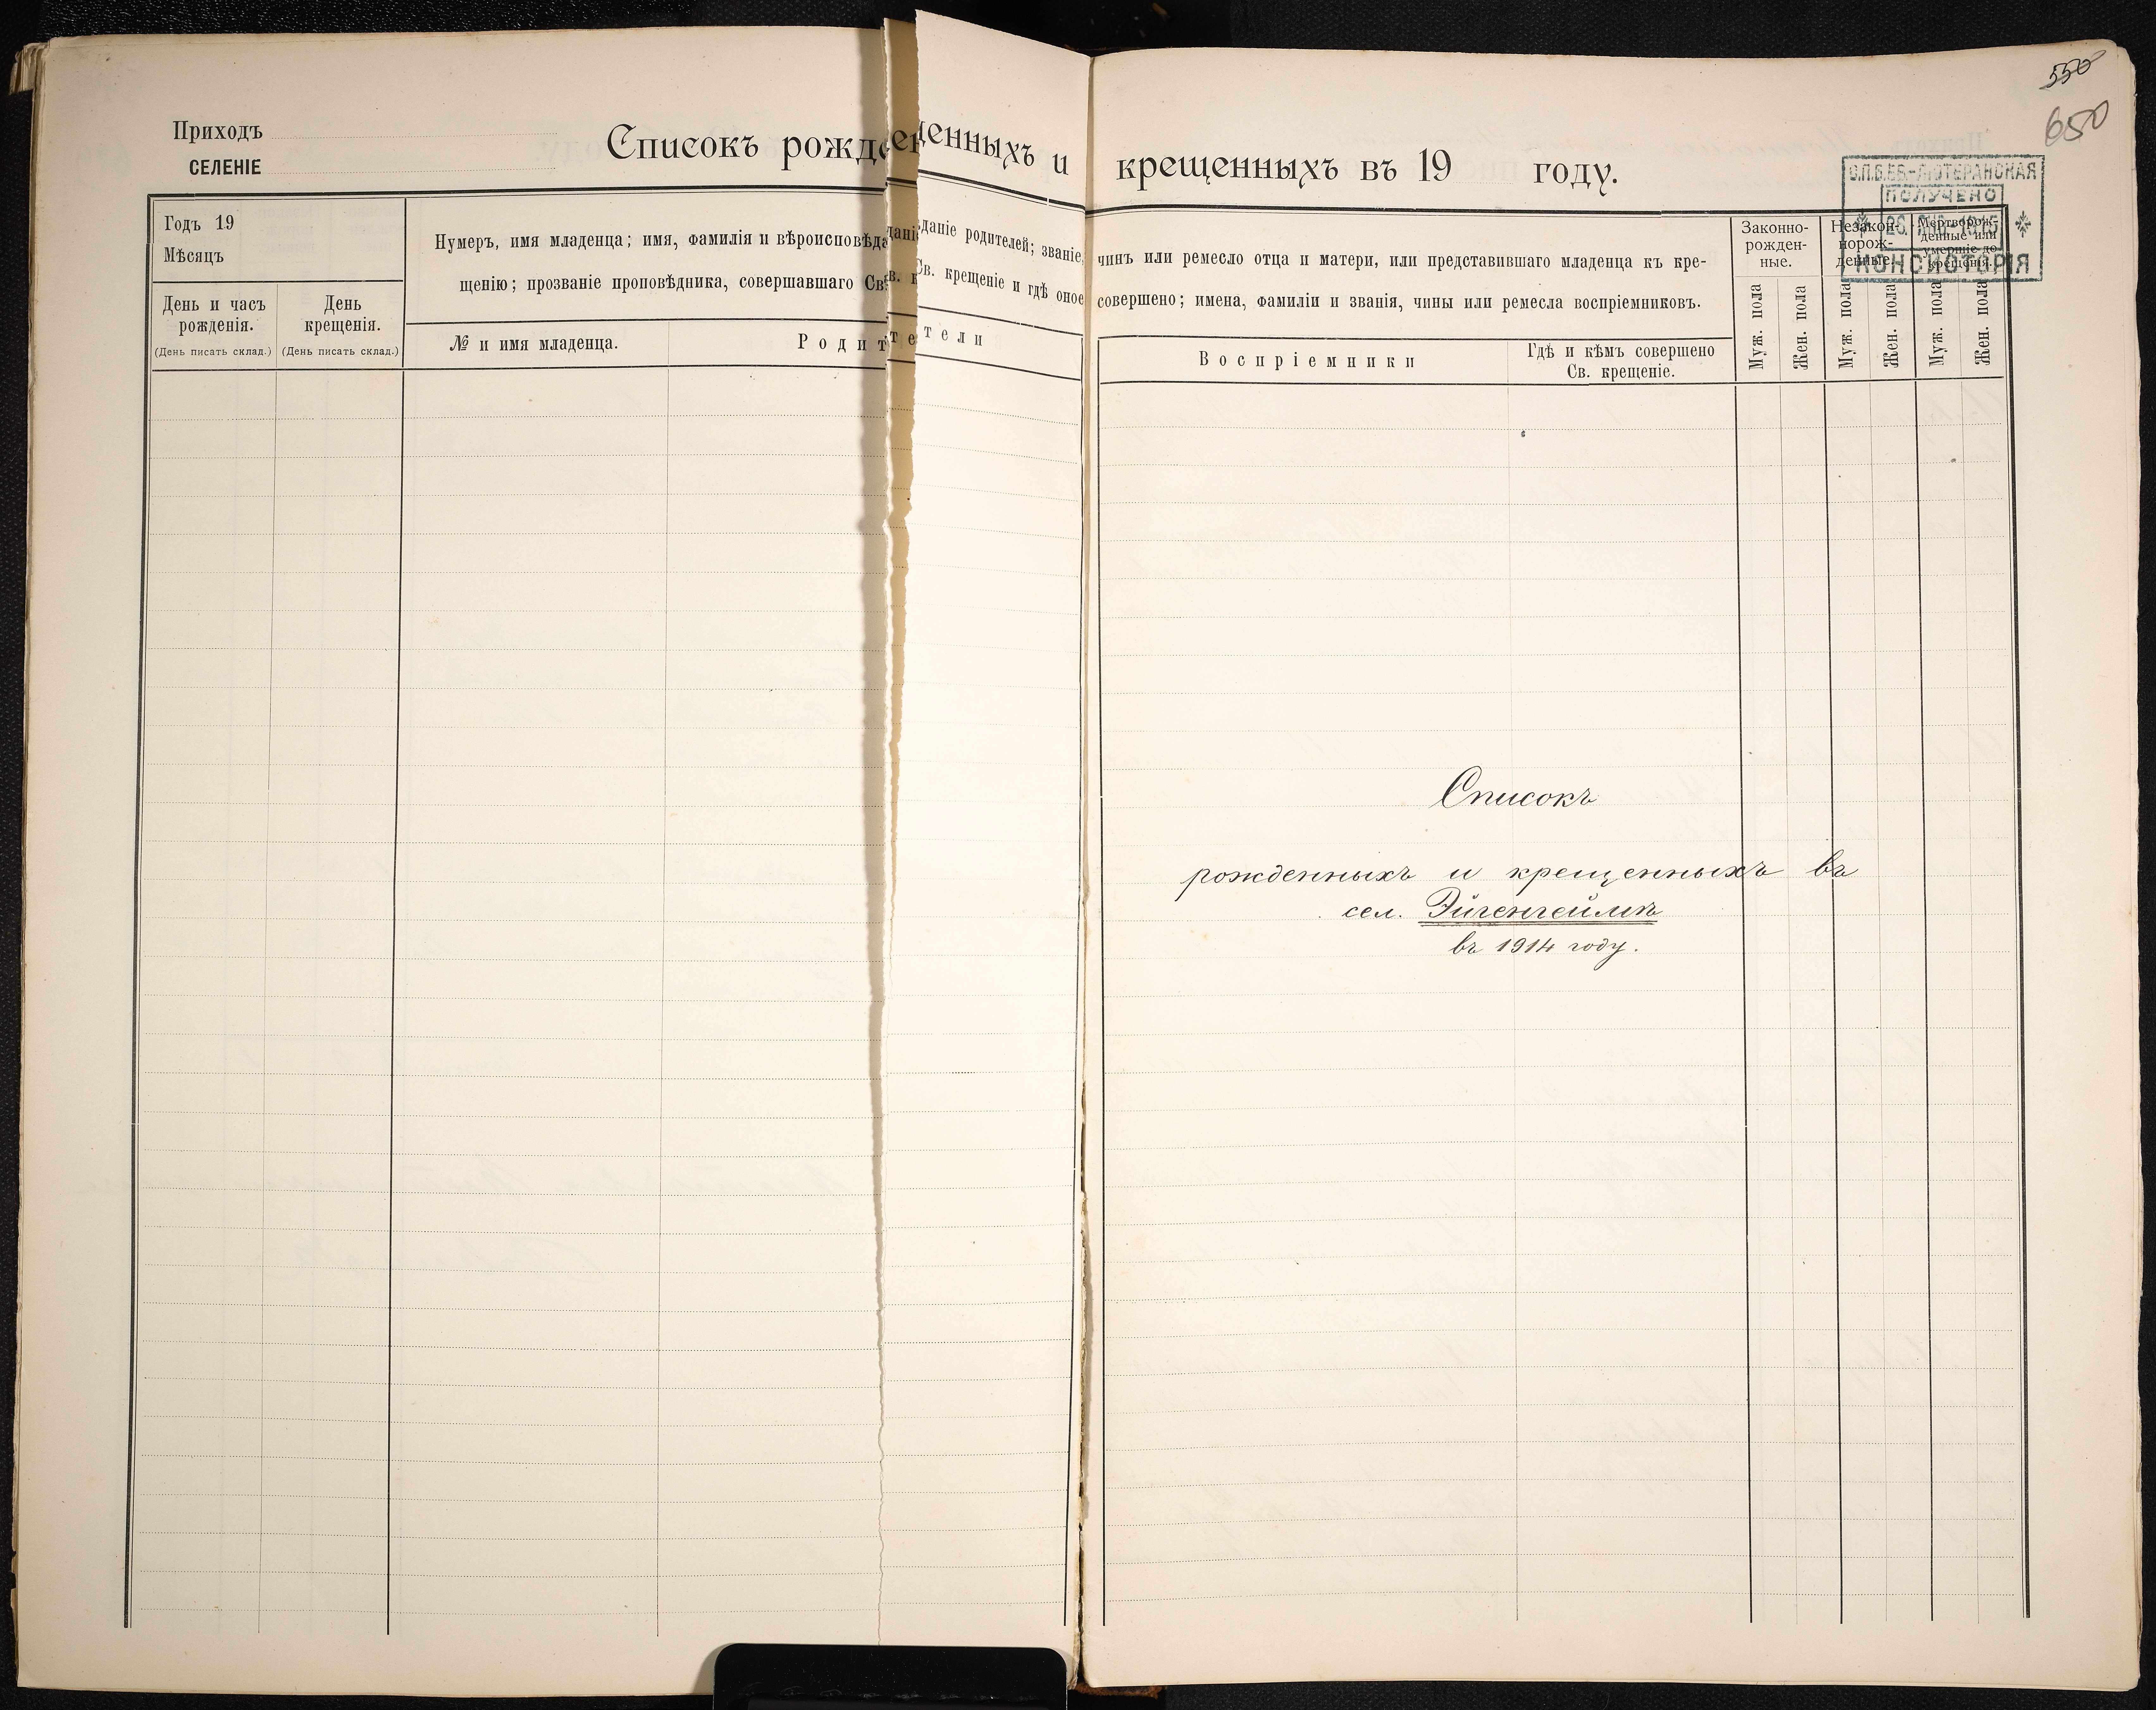 Приходъ
СЕЛЕНІЕ
Списокъ рожденныхъ и крещенныхъ въ 19 году.
550
650
С.П.Б.ЕВ.-ЛЮТЕРАНСКАЯ
ПОЛУЧЕНО
1915
КОНСИСТОРІЯ
Годъ 19
Мѣсяцъ
День и часъ
рожденія.
(День писать склад.)
День
крещенія.
(День писать склад.)
Нумеръ, имя младенца; имя, фамилія и вѣроисповѣданіе родителей; званіе,
чинъ или ремесло отца и матери, или представившаго младенца къ кре-
щенію; прозваніе проповѣдника, совершавшаго Св. крещеніе и гдѣ оное
совершено; имена, фамиліи и званія, чины или ремесла воспріемниковъ.
№ и имя младенца.
Родители
Воспріемники
Гдѣ и кѣмъ совершено
Св. крещеніе.
Законно-
рожден-
ные.
Незакон-
норож-
денные.
Мертворож-
денные или
умершіе до
крещенія.
Муж. пола
Жен. пола
Муж. пола
Жен. пола
Муж. пола
Жен. пола
Списокъ
рожденныхъ и крещенныхъ въ
сел. Эйгенгеймъ
въ 1914 году.